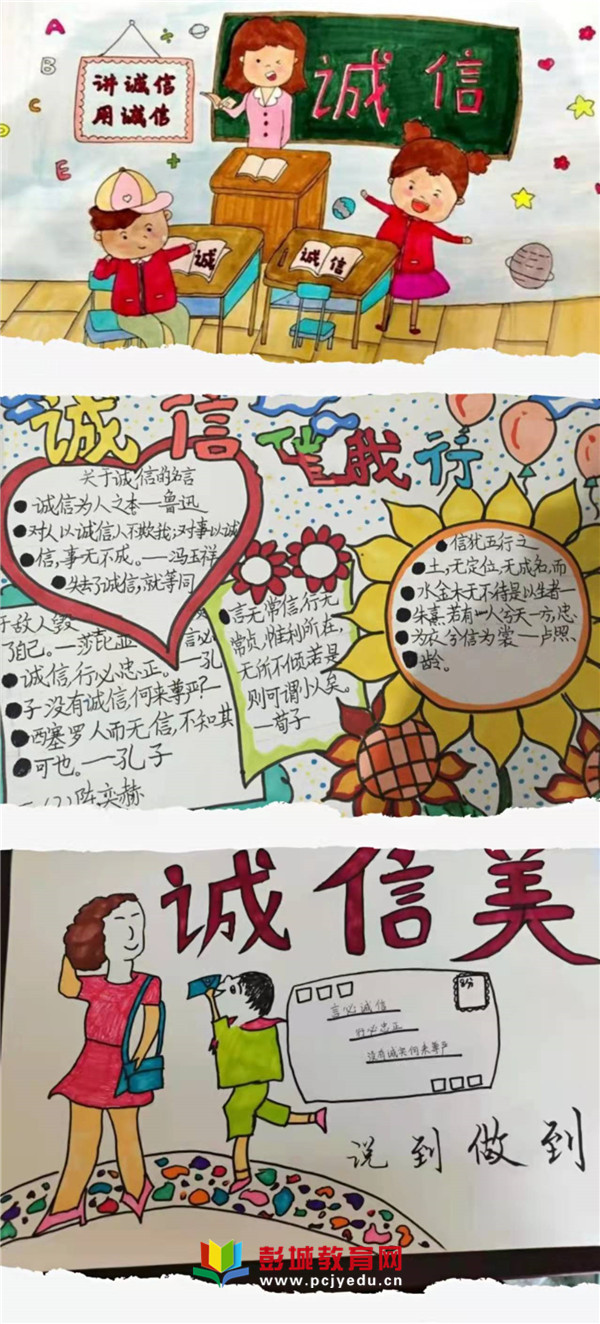 A
B
C
E
讲诚信
用诚信
诚信
诚
诚信
诚信伴我行
关于诚信的名言
诚信为人之本—鲁迅
对人以诚信人不欺我;对事以诚
信,事无不成。—冯玉祥
失去了诚信,就等同
于敌人毁
了自己。—莎比亚
言必
诚信,行必忠正。—孔
子没有诚信,何来尊严?—
西塞罗人而无信,不知其
可也。—孔子
二(2)陈奕赫
言无常信,行无
常贞,惟利所在,
无所不倾若是
则可谓小人矣。
—荀子
信犹五行之
土,无定位,无成名,而
水金木无不待是以生者—
朱熹.若有一人兮天一方,忠
为衣兮信为裳—卢照
龄。
诚信美
8分
言必诚信
行必忠正
没有诚实何来尊严
说到做到
彭城教育网
www.pcjyedu.cn